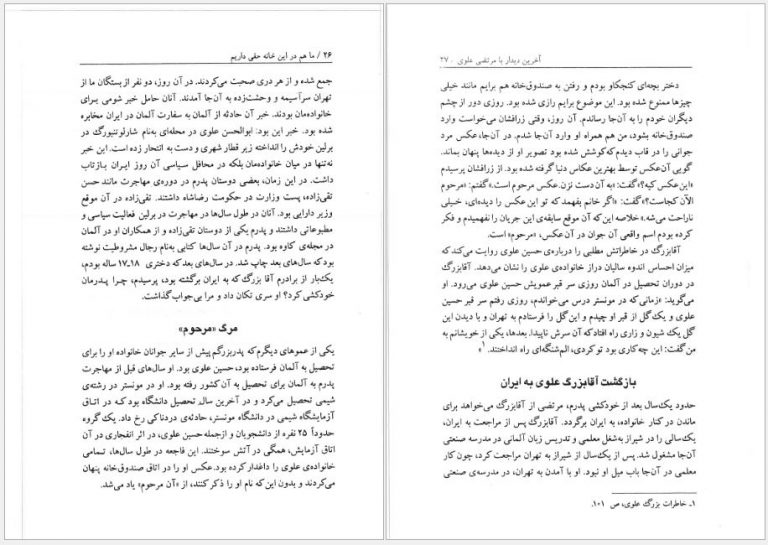 ۲۶ / ما هم در این خانه حقی داریم
جمع شده و از هر دری صحبت می‌کردند. در آن روز، دو نفر از بستگان ما از
تهران سرآسیمه و وحشت‌زده به آن‌جا آمدند. آنان حامل خبر شومی برای
خانواده‌مان بودند. خبر آن حادثه از آلمان به سفارت آلمان در ایران مخابره
شده بود. خبر این بود: ابوالحسن علوی در محله‌ای به‌نام شارلوتنبورگ در
برلین خودش را انداخته زیر قطار شهری و دست به انتحار زده است. این خبر
نه‌تنها در میان خانواده‌مان بلکه در محافل سیاسی آن روز ایران بازتاب
داشت. در این زمان، بعضی دوستان پدرم در دوره‌ی مهاجرت مانند حسن
تقی‌زاده، پست وزارت در حکومت رضاشاه داشتند. تقی‌زاده در آن موقع
وزیر دارایی بود. آنان در طول سال‌ها در مهاجرت در برلین فعالیت سیاسی و
مطبوعاتی داشتند و پدرم یکی از دوستان تقی‌زاده و از همکاران او در آلمان
در مجله‌ی کاوه بود. پدرم در آن سال‌ها کتابی به‌نام رجال مشروطیت نوشته
بود که سال‌های بعد چاپ شد. در سال‌های بعد که دختری ۱۸ـ۱۷ ساله بودم،
یک‌بار از برادرم آقا بزرگ که به ایران برگشته بود، پرسیدم، چرا پدرمان
خودکشی کرد؟ او سری تکان داد و مرا بی‌جواب گذاشت.
مرگ «مرحوم»
یکی از عموهای دیگرم که پدربزرگم پیش از سایر جوانان خانواده او را برای
تحصیل به آلمان فرستاده بود، حسین علوی بود. او سال‌های قبل از مهاجرت
پدرم به آلمان برای تحصیل به آن کشور رفته بود. او در مونستر در رشته‌ی
شیمی تحصیل می‌کرد و در آخرین سال تحصیل دانشگاه بود که در اتاق
آزمایشگاه شیمی در دانشگاه مونستر، حادثه‌ی دردناکی رخ داد. یک گروه
حدوداً ۲۵ نفره از دانشجویان و ازجمله حسین علوی، در اثر انفجاری در آن
اتاق آزمایش، همگی در آتش سوختند. این فاجعه در طول سال‌ها، تمامی
خانواده‌ی علوی را داغدار کرده بود. عکس او را در اتاق صندوق‌خانه پنهان
می‌کردند و بدون این‌که نام او را ذکر کنند، از «آن مرحوم» یاد می‌شد.
آخرین دیدار با مرتضی علوی . ۲۷
دختر بچه‌ای کنجکاو بودم و رفتن به صندوق‌خانه هم برایم مانند خیلی
چیزها ممنوع شده بود. این موضوع برایم رازی شده بود. روزی دور از چشم
دیگران خودم را به آن‌جا رساندم. آن روز، وقتی زرافشان می‌خواست وارد
صندوق‌خانه بشود، من هم همراه او وارد آن‌جا شدم. در آن‌جا، عکس مرد
جوانی را در قاب دیدم که کوشش شده بود تصویر او از دیده‌ها پنهان بماند.
گویی آن عکس توسط بهترین عکاس دنیا گرفته شده بود. از زرافشان پرسیدم
«این عکس کیه؟» گفت: «به آن دست نزن. عکس مرحوم است.» گفتم: «مرحوم
الآن کجاست؟» گفت: «اگر خانم بفهمد که تو این عکس را دیده‌ای، خیلی
ناراحت می‌شه.» خلاصه این که آن موقع سابقه‌ی این جریان را نفهمیدم و فکر
کرده بودم اسم واقعی آن جوان در آن عکس، «مرحوم» است.
آقابزرگ در خاطراتش مطلبی را درباره‌ی حسین علوی روایت می‌کند که
میزان احساس اندوه سالیان دراز خانواده‌ی علوی را نشان می‌دهد. آقابزرگ
در دوران تحصیل در آلمان روزی سر قبر عمویش حسین علوی می‌رود. او
می‌گوید: «زمانی که در مونستر درس می‌خواندم، روزی رفتم سر قبر حسین
علوی و یک گل از قبر او چیدم و این گل را فرستادم به تهران و با دیدن این
گل یک شیون و زاری راه افتاد که آن سرش ناپیدا. بعدها، یکی از خویشانم به
من گفت: این چه کاری بود تو کردی، الم‌شنگه‌ای راه انداختند.»۱
بازگشت آقابزرگ علوی به ایران
حدود یک‌سال بعد از خودکشی پدرم، مرتضی از آقابزرگ می‌خواهد برای
ماندن در کنار خانواده، به ایران برگردد. آقابزرگ پس از مراجعت به ایران،
یک‌سالی را در شیراز به‌شغل معلمی و تدریس زبان آلمانی در مدرسه صنعتی
آن‌جا مشغول شد. پس از یک‌سال از شیراز به تهران مراجعت کرد، چون کار
معلمی در آن‌جا باب میل او نبود. او با آمدن به تهران، در مدرسه‌ی صنعتی
۱ـ خاطرات بزرگ علوی، ص ۱۰۱.